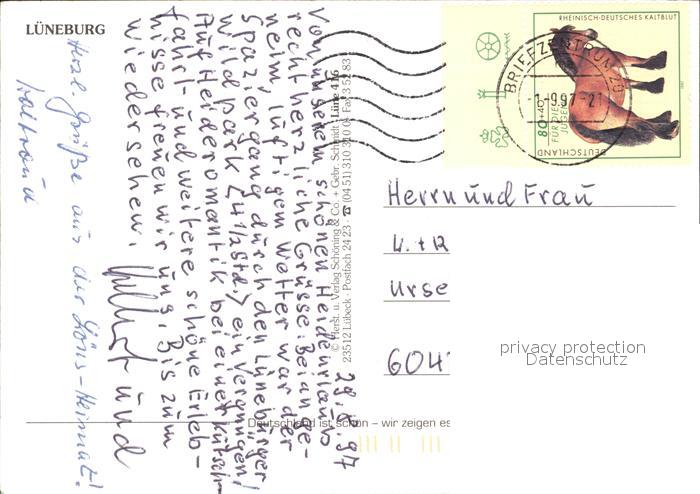 LÜNEBURG
RHEINISCH-DEUTSCHES KALTBLUT
BRIEFZENTRUM 20
-1.-9.97-21
80+40
FÜR DIE JUGEND
DEUTSCHLAND
28.8.97
Von unserem schönen Heideurlaub
recht herzliche Grüsse. Bei ange-
nehm luftigem Wetter war der
Spaziergang durch den Lüneburger
Wildpark (4 1/2 Std.) ein Vergnügen!
Auf Heideromantik bei einer Kutsch-
fahrt und weitere schöne Erleb-
nisse freuen wir uns. Bis zum
Wiedersehen.
und
Herzl. Grüße aus der Löns-Heimat!
Waltraud
© Herst. u. Verlag Schöning & Co. + Gebr. Schmidt · Lüne 416
23512 Lübeck · Postfach 24 23 · ☎ (04 51) 310 320 · Fax 3 52 83
Deutschland ist schön – wir zeigen es
Herrn und Frau
Urse
604
privacy protection
Datenschutz